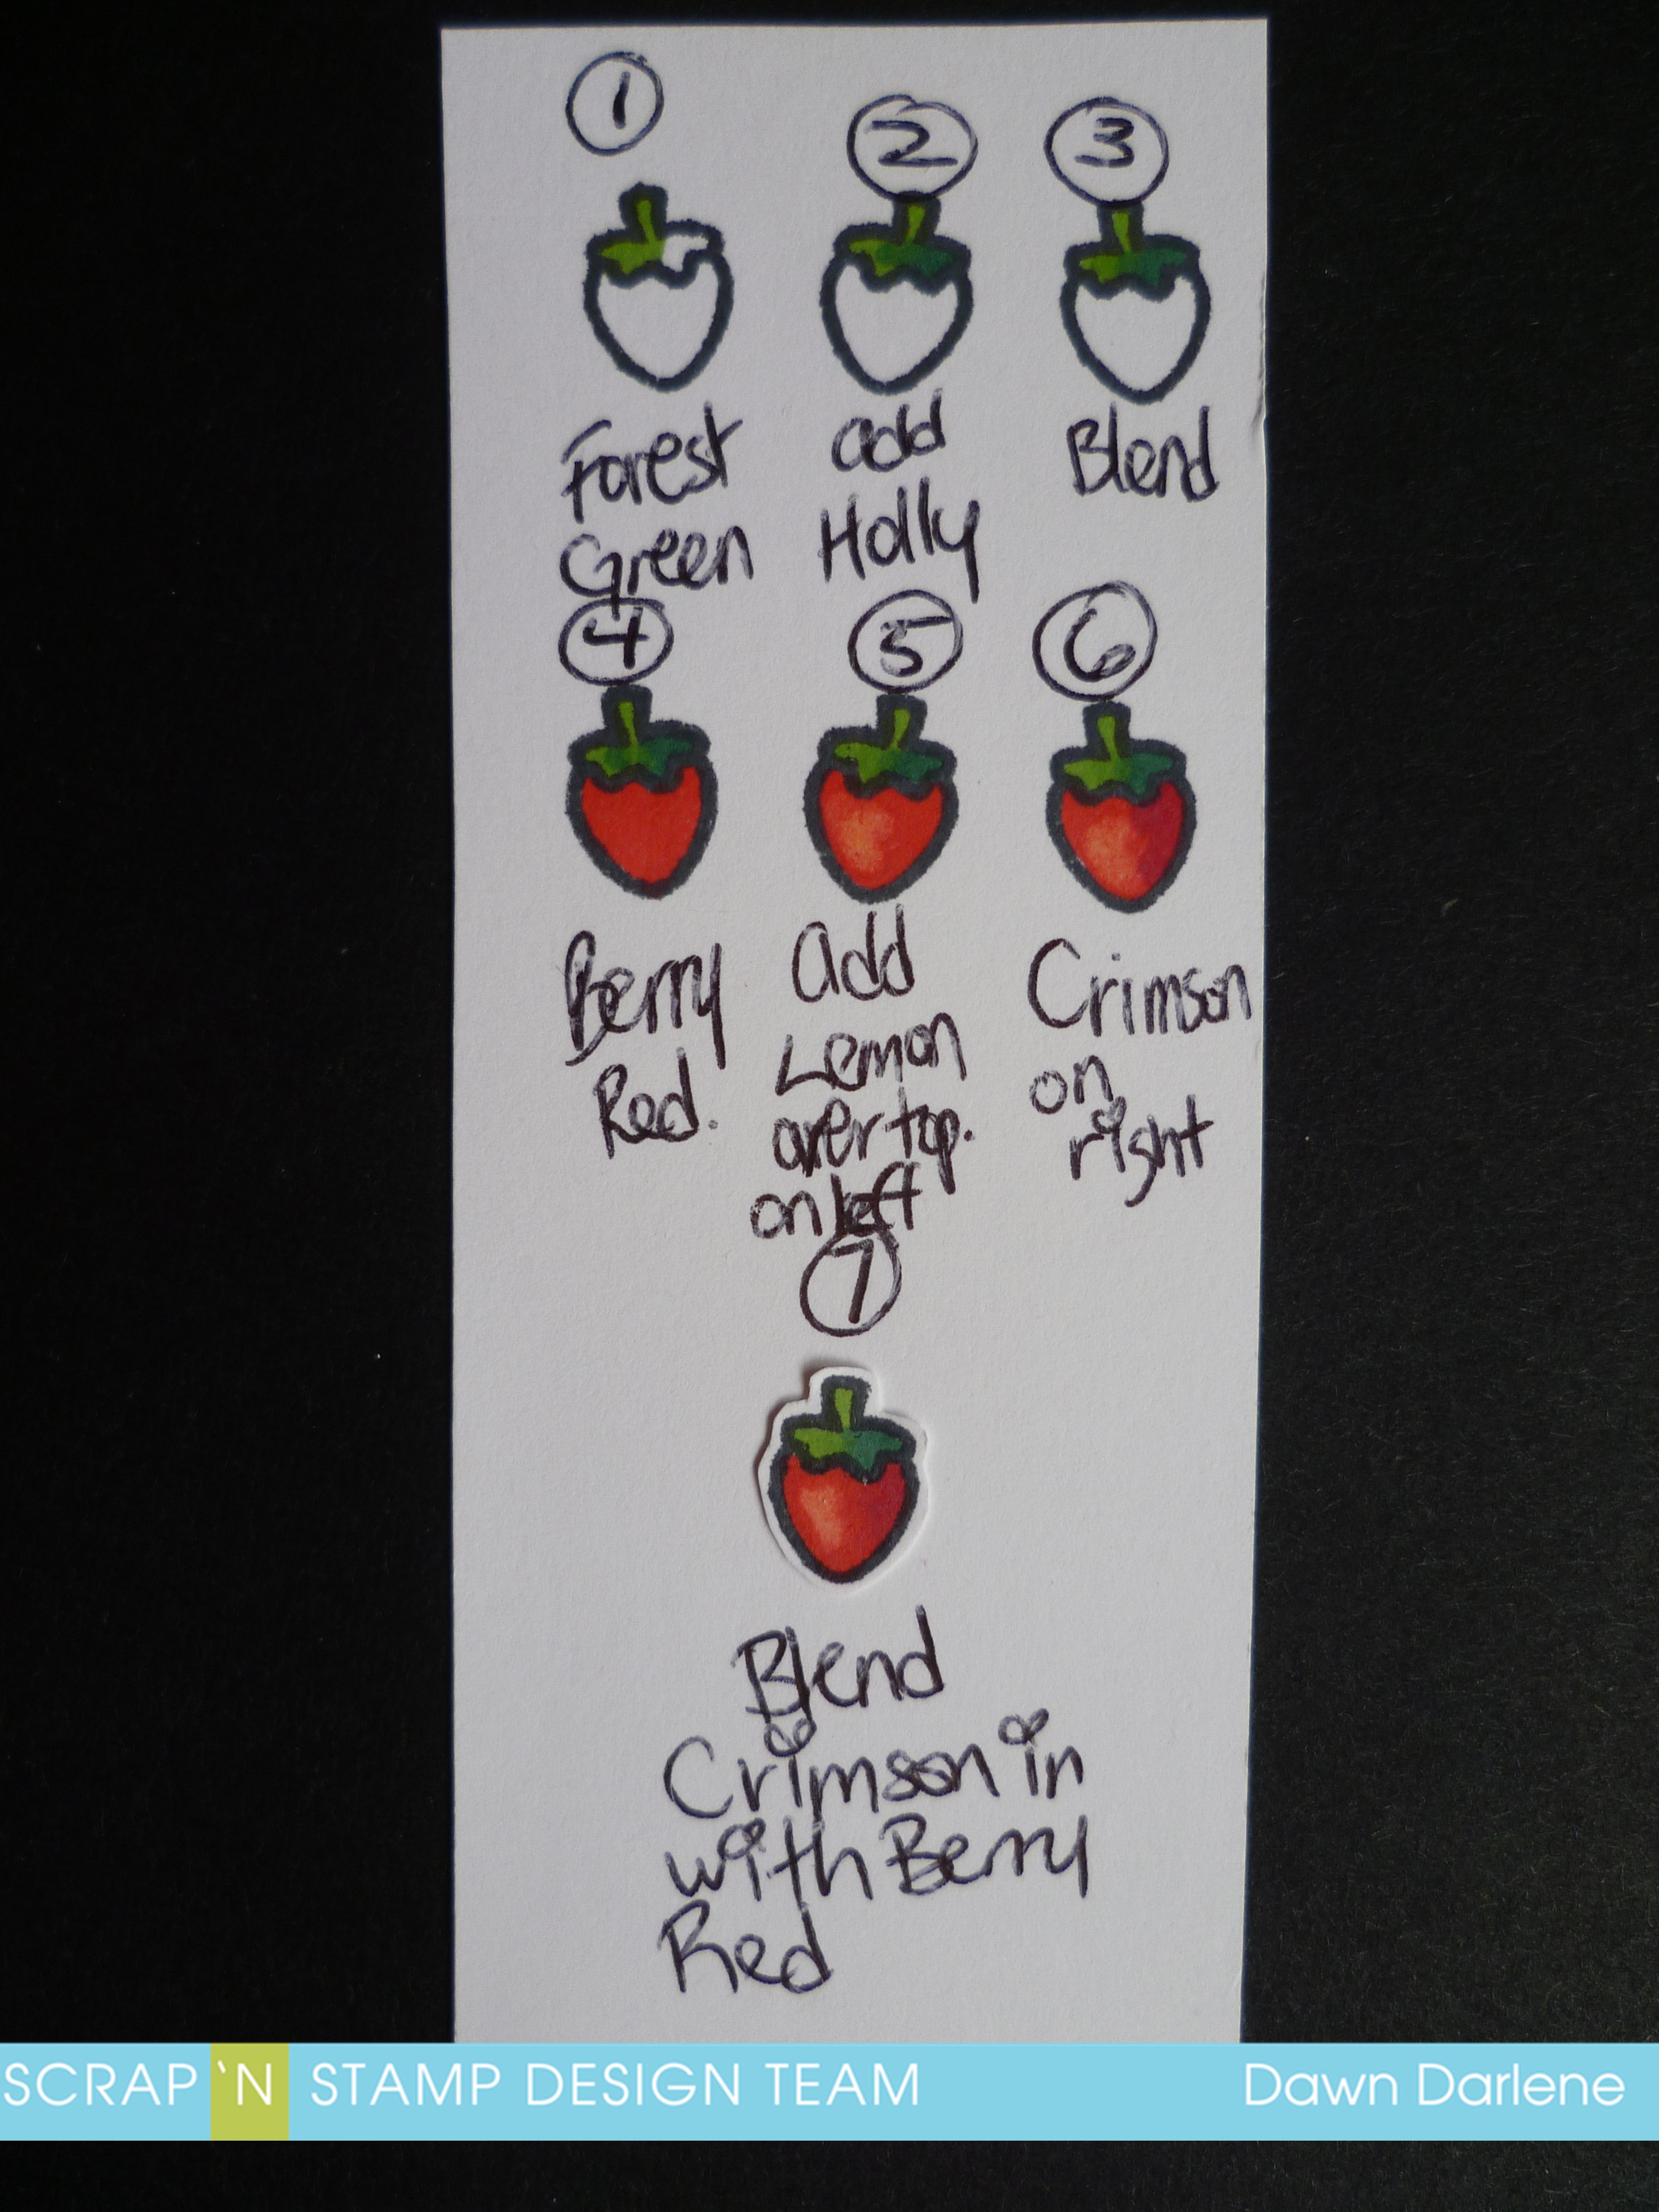 1
Forest
Green
2
add
Holly
3
Blend
4
Berry
Red.
5
Add
Lemon
over top.
on left
6
Crimson
on
right
7
Blend
Crimson in
with Berry
Red
SCRAP 'N STAMP DESIGN TEAM
Dawn Darlene